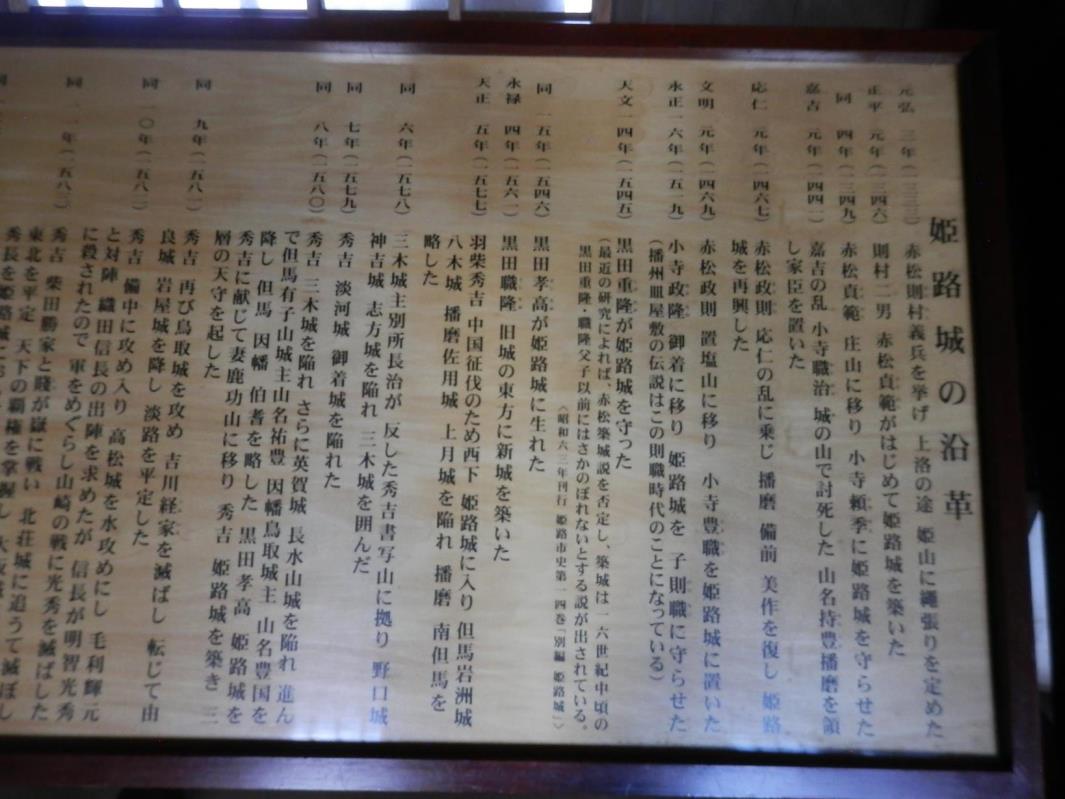 姫路城の沿革
元弘 三年(一三三三) 赤松則村義兵を挙げ 上洛の途 姫山に縄張りを定めた
正平 元年(一三四六) 則村二男 赤松貞範がはじめて姫路城を築いた
同 四年(一三四九) 赤松貞範 庄山に移り 小寺頼季に姫路城を守らせた
嘉吉 元年(一四四一) 嘉吉の乱 小寺職治 城の山で討死した 山名持豊播磨を領
し家臣を置いた
応仁 元年(一四六七) 赤松政則 応仁の乱に乗じ 播磨 備前 美作を復し 姫路
城を再興した
文明 元年(一四六九) 赤松政則 置塩山に移り 小寺豊職を姫路城に置いた
永正一六年(一五一九) 小寺政隆 御着に移り 姫路城を 子則職に守らせた
(播州皿屋敷の伝説はこの則職時代のことになっている)
天文一四年(一五四五) 黒田重隆が姫路城を守った
(最近の研究によれば、赤松築城説を否定し、築城は一六世紀中頃の
黒田重隆・職隆父子以前にはさかのぼれないとする説が出されている。
〈昭和六三年刊行 姫路市史第一四巻「別編 姫路城」〉
同 一五年(一五四六) 黒田孝高が姫路城に生れた
永禄 四年(一五六一) 黒田職隆 旧城の東方に新城を築いた
天正 五年(一五七七) 羽柴秀吉 中国征伐のため西下 姫路城に入り 但馬岩洲城
八木城 播磨佐用城 上月城を陥れ 播磨 南但馬を
略した
同 六年(一五七八) 三木城主別所長治が 反した秀吉書写山に拠り 野口城
神吉城 志方城を陥れ 三木城を囲んだ
同 七年(一五七九) 秀吉 淡河城 御着城を陥れた
同 八年(一五八〇) 秀吉 三木城を陥れ さらに英賀城 長水山城を陥れ 進ん
で但馬有子山城主山名祐豊 因幡鳥取城主 山名豊国を
降し 但馬 因幡 伯耆を略した 黒田孝高 姫路城を
秀吉に献じて妻鹿功山に移り 秀吉 姫路城を築き 三
層の天守を起した
同 九年(一五八一) 秀吉 再び鳥取城を攻め 吉川経家を滅ばし 転じて由
良城 岩屋城を降し 淡路を平定した
同 一〇年(一五八二) 秀吉 備中に攻め入り 高松城を水攻めにし 毛利輝元
と対陣 織田信長の出陣を求めたが 信長が明智光秀
に殺されたので 軍をめぐらし山崎の戦に光秀を滅ばした
同 一一年(一五八三) 秀吉 柴田勝家と賤が嶽に戦い 北荘城に追うて滅ぼし
東北を平定 天下の覇権を掌握し 大阪城
秀長を姫路城に